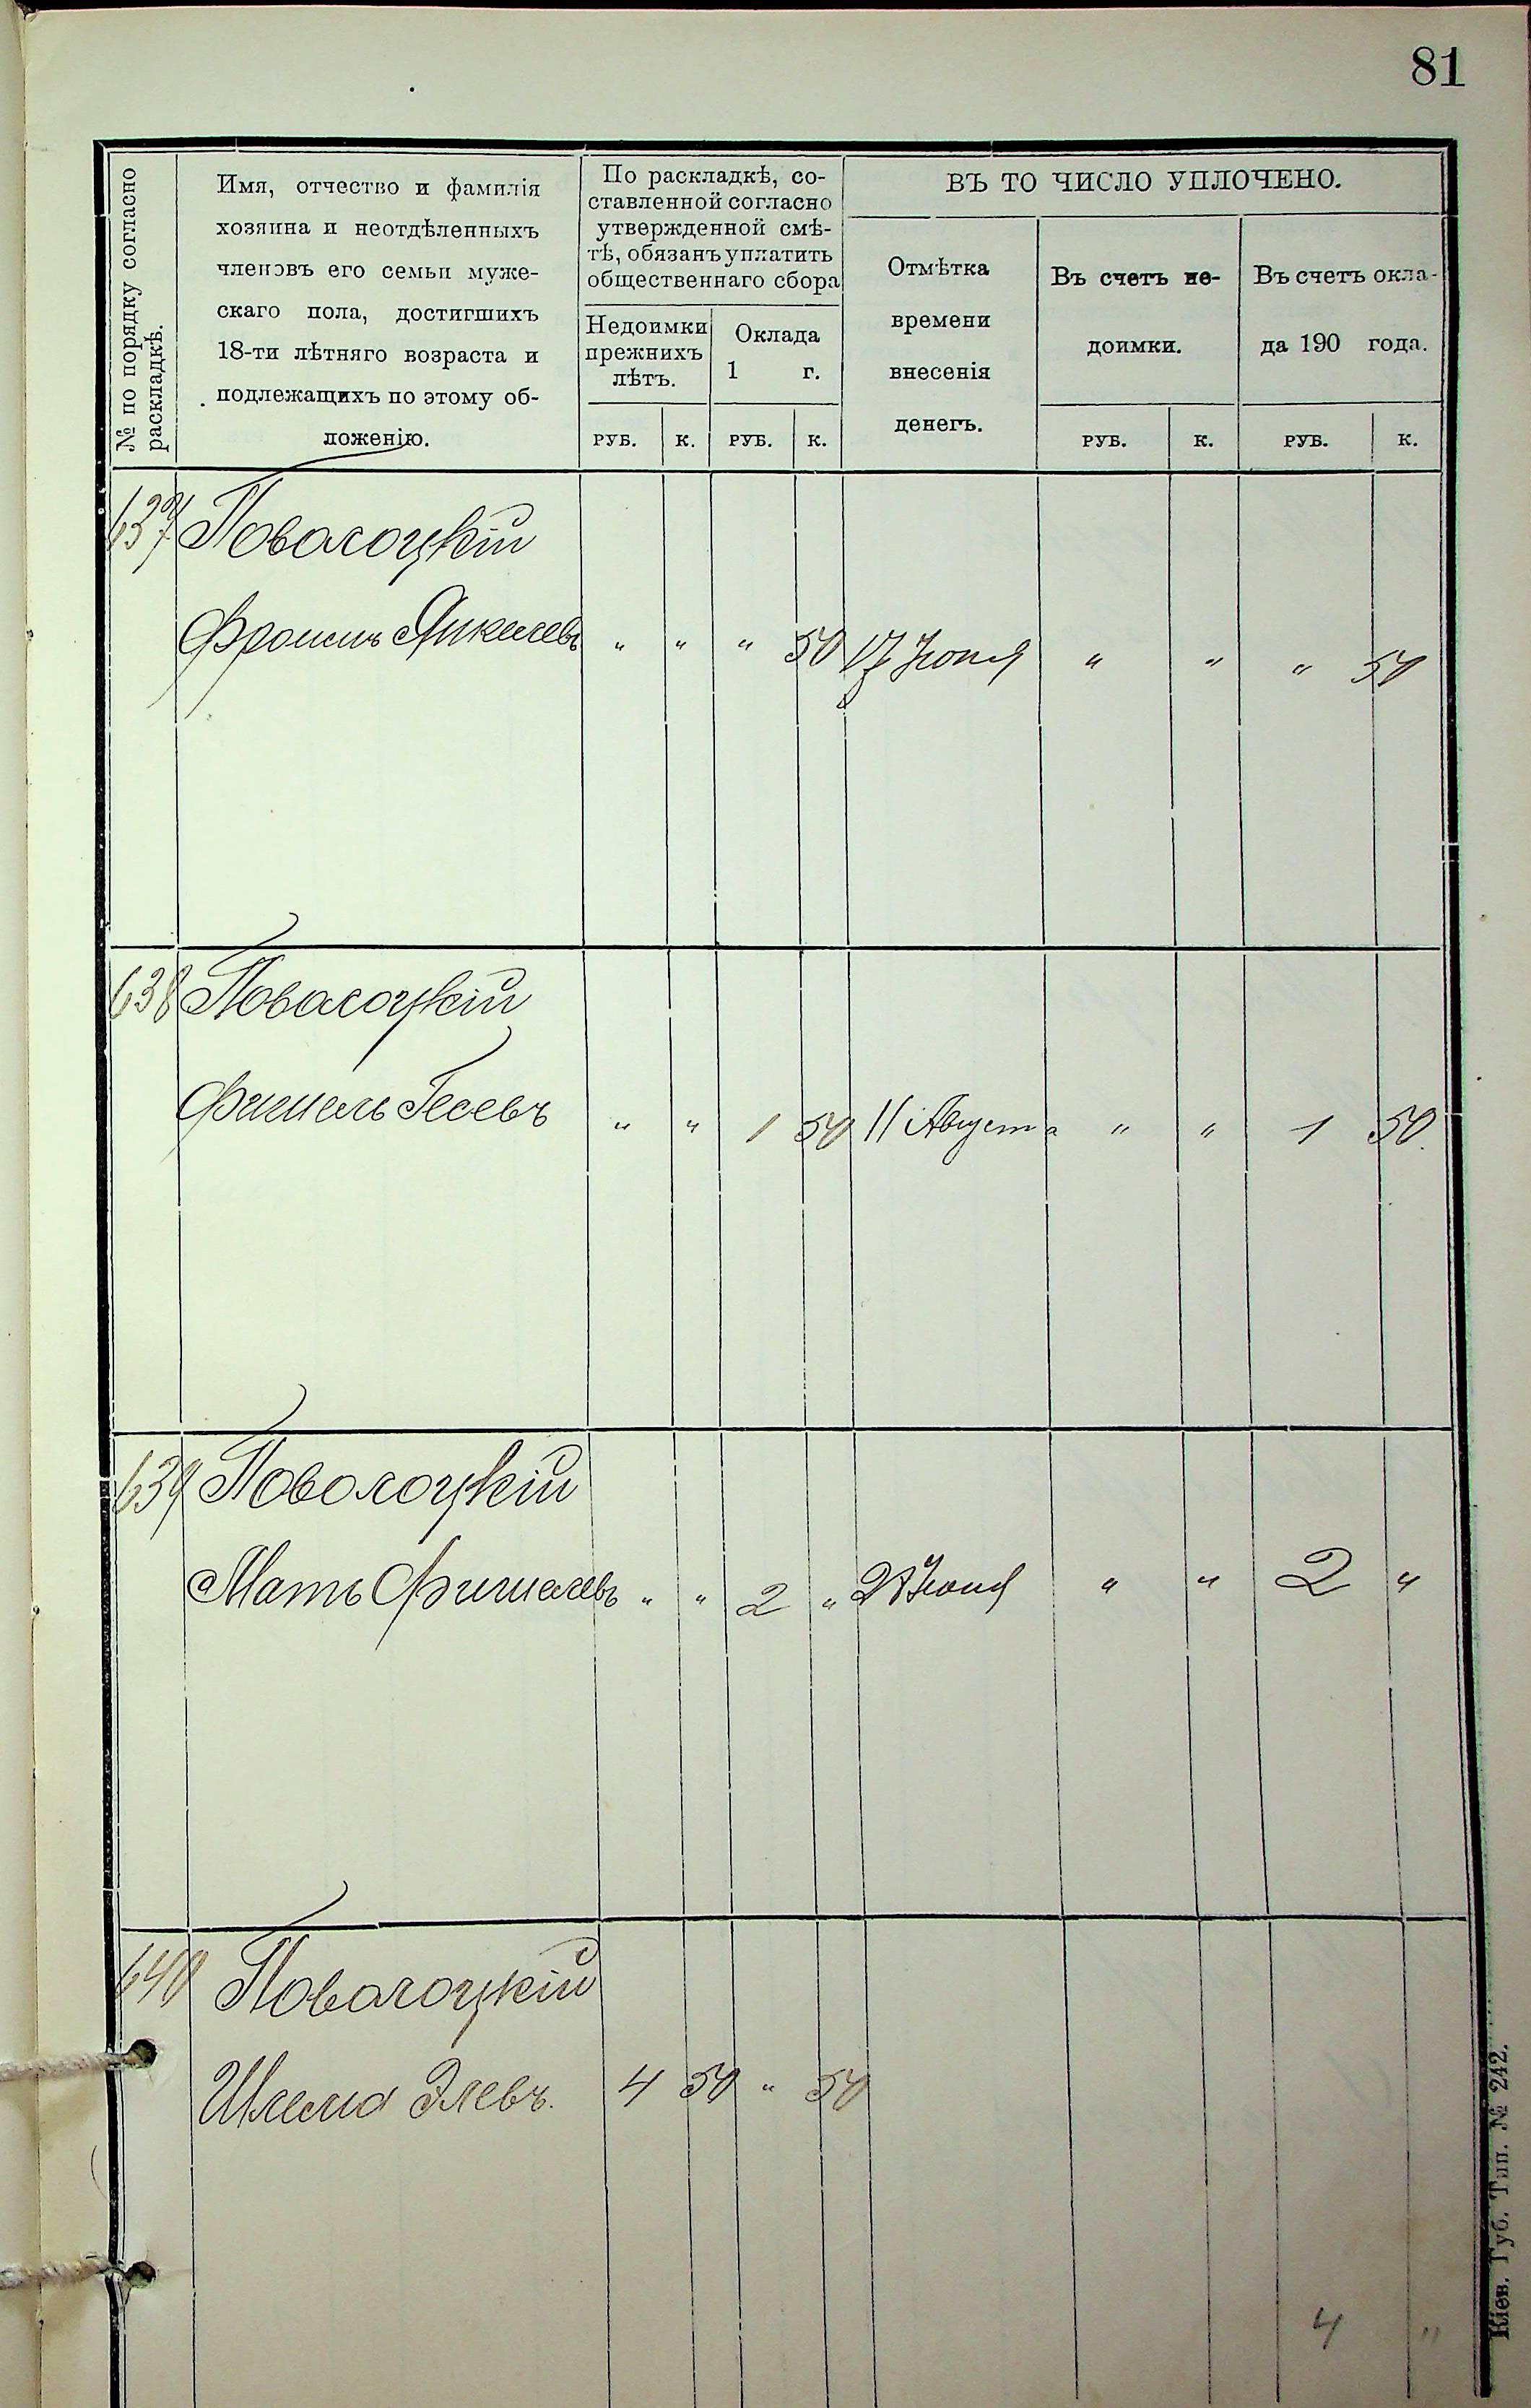 81
№ по порядку согласно
раскладкѣ.
Имя, отчество и фамилія
хозяина и неотдѣленныхъ
членовъ его семьи муже-
скаго пола, достигшихъ
18-ти лѣтняго возраста и
подлежащихъ по этому об-
ложенію.
По раскладкѣ, со-
ставленной согласно
утвержденной смѣ-
тѣ, обязанъ уплатить
общественнаго сбора
Недоимки
прежнихъ
лѣтъ.
Оклада
1 г.
ВЪ ТО ЧИСЛО УПЛОЧЕНО.
Отмѣтка
времени
внесенія
денегъ.
Въ счетъ не-
доимки.
Въ счетъ окла-
да 190 года.
РУБ. К. РУБ. К. РУБ. К. РУБ. К.
637 Поволоцкій
Фроимъ Янкелевъ " " " 50 17 Іюня " " " 50
638 Поволоцкій
Фишель Гесевъ " " 1 50 11 Августа " " 1 50
639 Поволоцкій
Мать Фишелевъ " " 2 " Іюня " " 2 "
640 Поволоцкій
Шлема Элевъ. 4 50 " 50
4 "
Кіев. Губ. Тип. № 242.